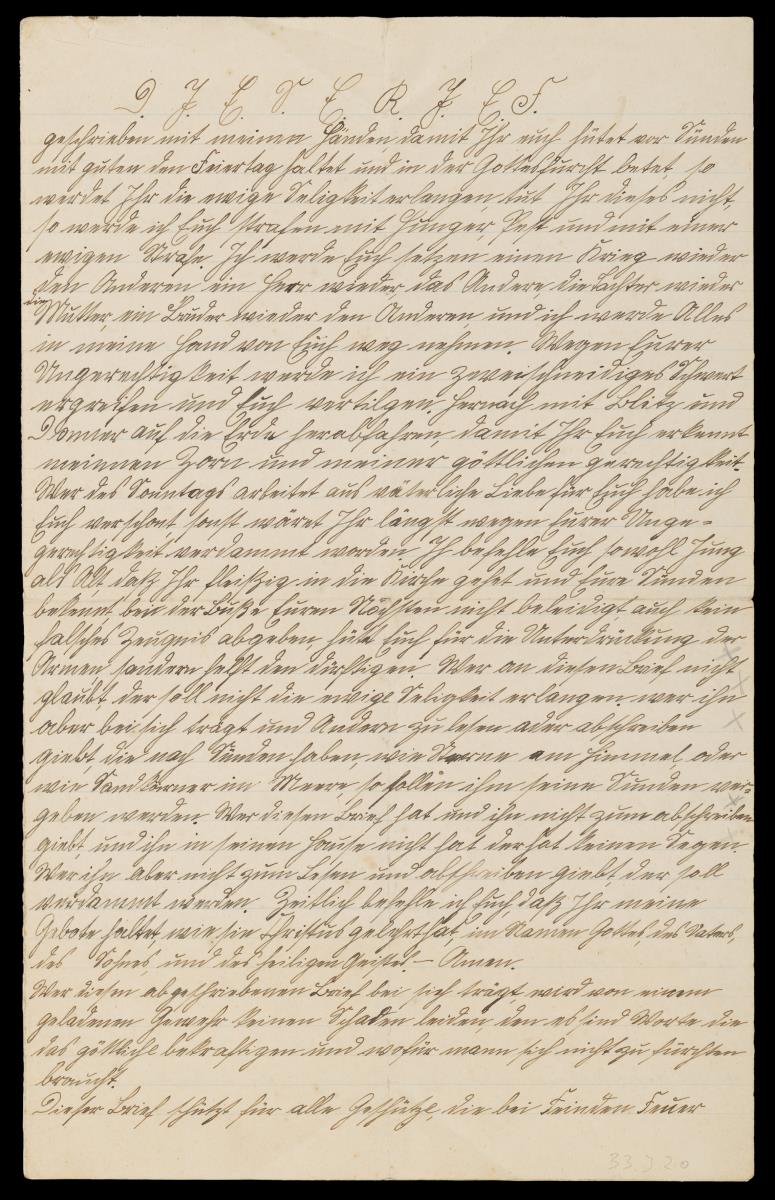 D. J. E. S. E. R. J. E. F.
geschrieben mit meinen Händen damit Ihr euch hütet vor Sünden
mit guten den Feiertag haltet und in der Gottesfurcht betet, so
werdet Ihr die ewige Seligkeit erlangen, tut Ihr dieses nicht,
so werde ich Euch strafen mit Hunger, Pest und mit einer
ewigen Strafe. Ich werde Euch setzen einen Krieg wieder
den Anderen ein Herr wieder, das Andere, die Tochter wieder
die Mutter, ein Bruder wieder den Anderen, und ich werde Alles
in meine Hand von Euch weg nehmen. Wegen Eurer
Ungerechtigkeit werde ich ein zweischneidiges Schwert
ergreifen und Euch vertilgen. Hernach mit Blitz und
Donner auf die Erde herabfahren, damit Ihr Euch erkennt
meinnen Zorn und meiner göttlichen gerechtigkeit.
Wer des Sonntags arbeitet aus väterliche Liebe für Euch habe ich
Euch verschont sonst wäret Ihr längst wegen Eurer Unge-
gerechtigkeit verdammt worden. Ih befehle Euch sowohl Jung
als Alt daß Ihr fleißig in die Kirche gehet und Eure Sünden
bekennt bei der Buße Euren Nächsten nicht beleidigt, auch kein
falsches Zeugnis abgeben, hüte Euch für die Unterdrückung der
Armen sondern helft den dürftigen. Wer an diesen Brief nicht
glaubt, der soll nicht die ewige Seligkeit erlangen. wer ihn
aber bei sich trägt und Andern zu lesen oder abschreiben
giebt, die noch Sünden haben, wie Sterne am Himmel, oder
wie Sandkörner im Meere, so sollen ihm seine Sünden ver-
geben werden. Wer diesen Brief hat und ihn nicht zum abschreiben
giebt, und ihn in seinen Hause nicht hat der hat keinen Segen.
Wer ihn aber nicht zum Lesen und abschreiben giebt, der soll
verdammt werden. Zeitlich befehle ich Euch, daß Ihr meine
Gebote haltet, wie sie Christus gelehrt hat, im Namen Gottes, des Vaters,
des Sohnes, und des heiligen Geistes. – Amen.
Wer diesen abgeschriebenen Brief bei sich trägt, wird von einem
geladenen Gewehr keinen Schaden leiden, den es sind Worte die
das göttliche bekraftigen und wofür mann sich nicht zu fürchten
braucht.
Dieser Brief schützt für alle Geschütze, die bei Feinden Feuer
33 J 20